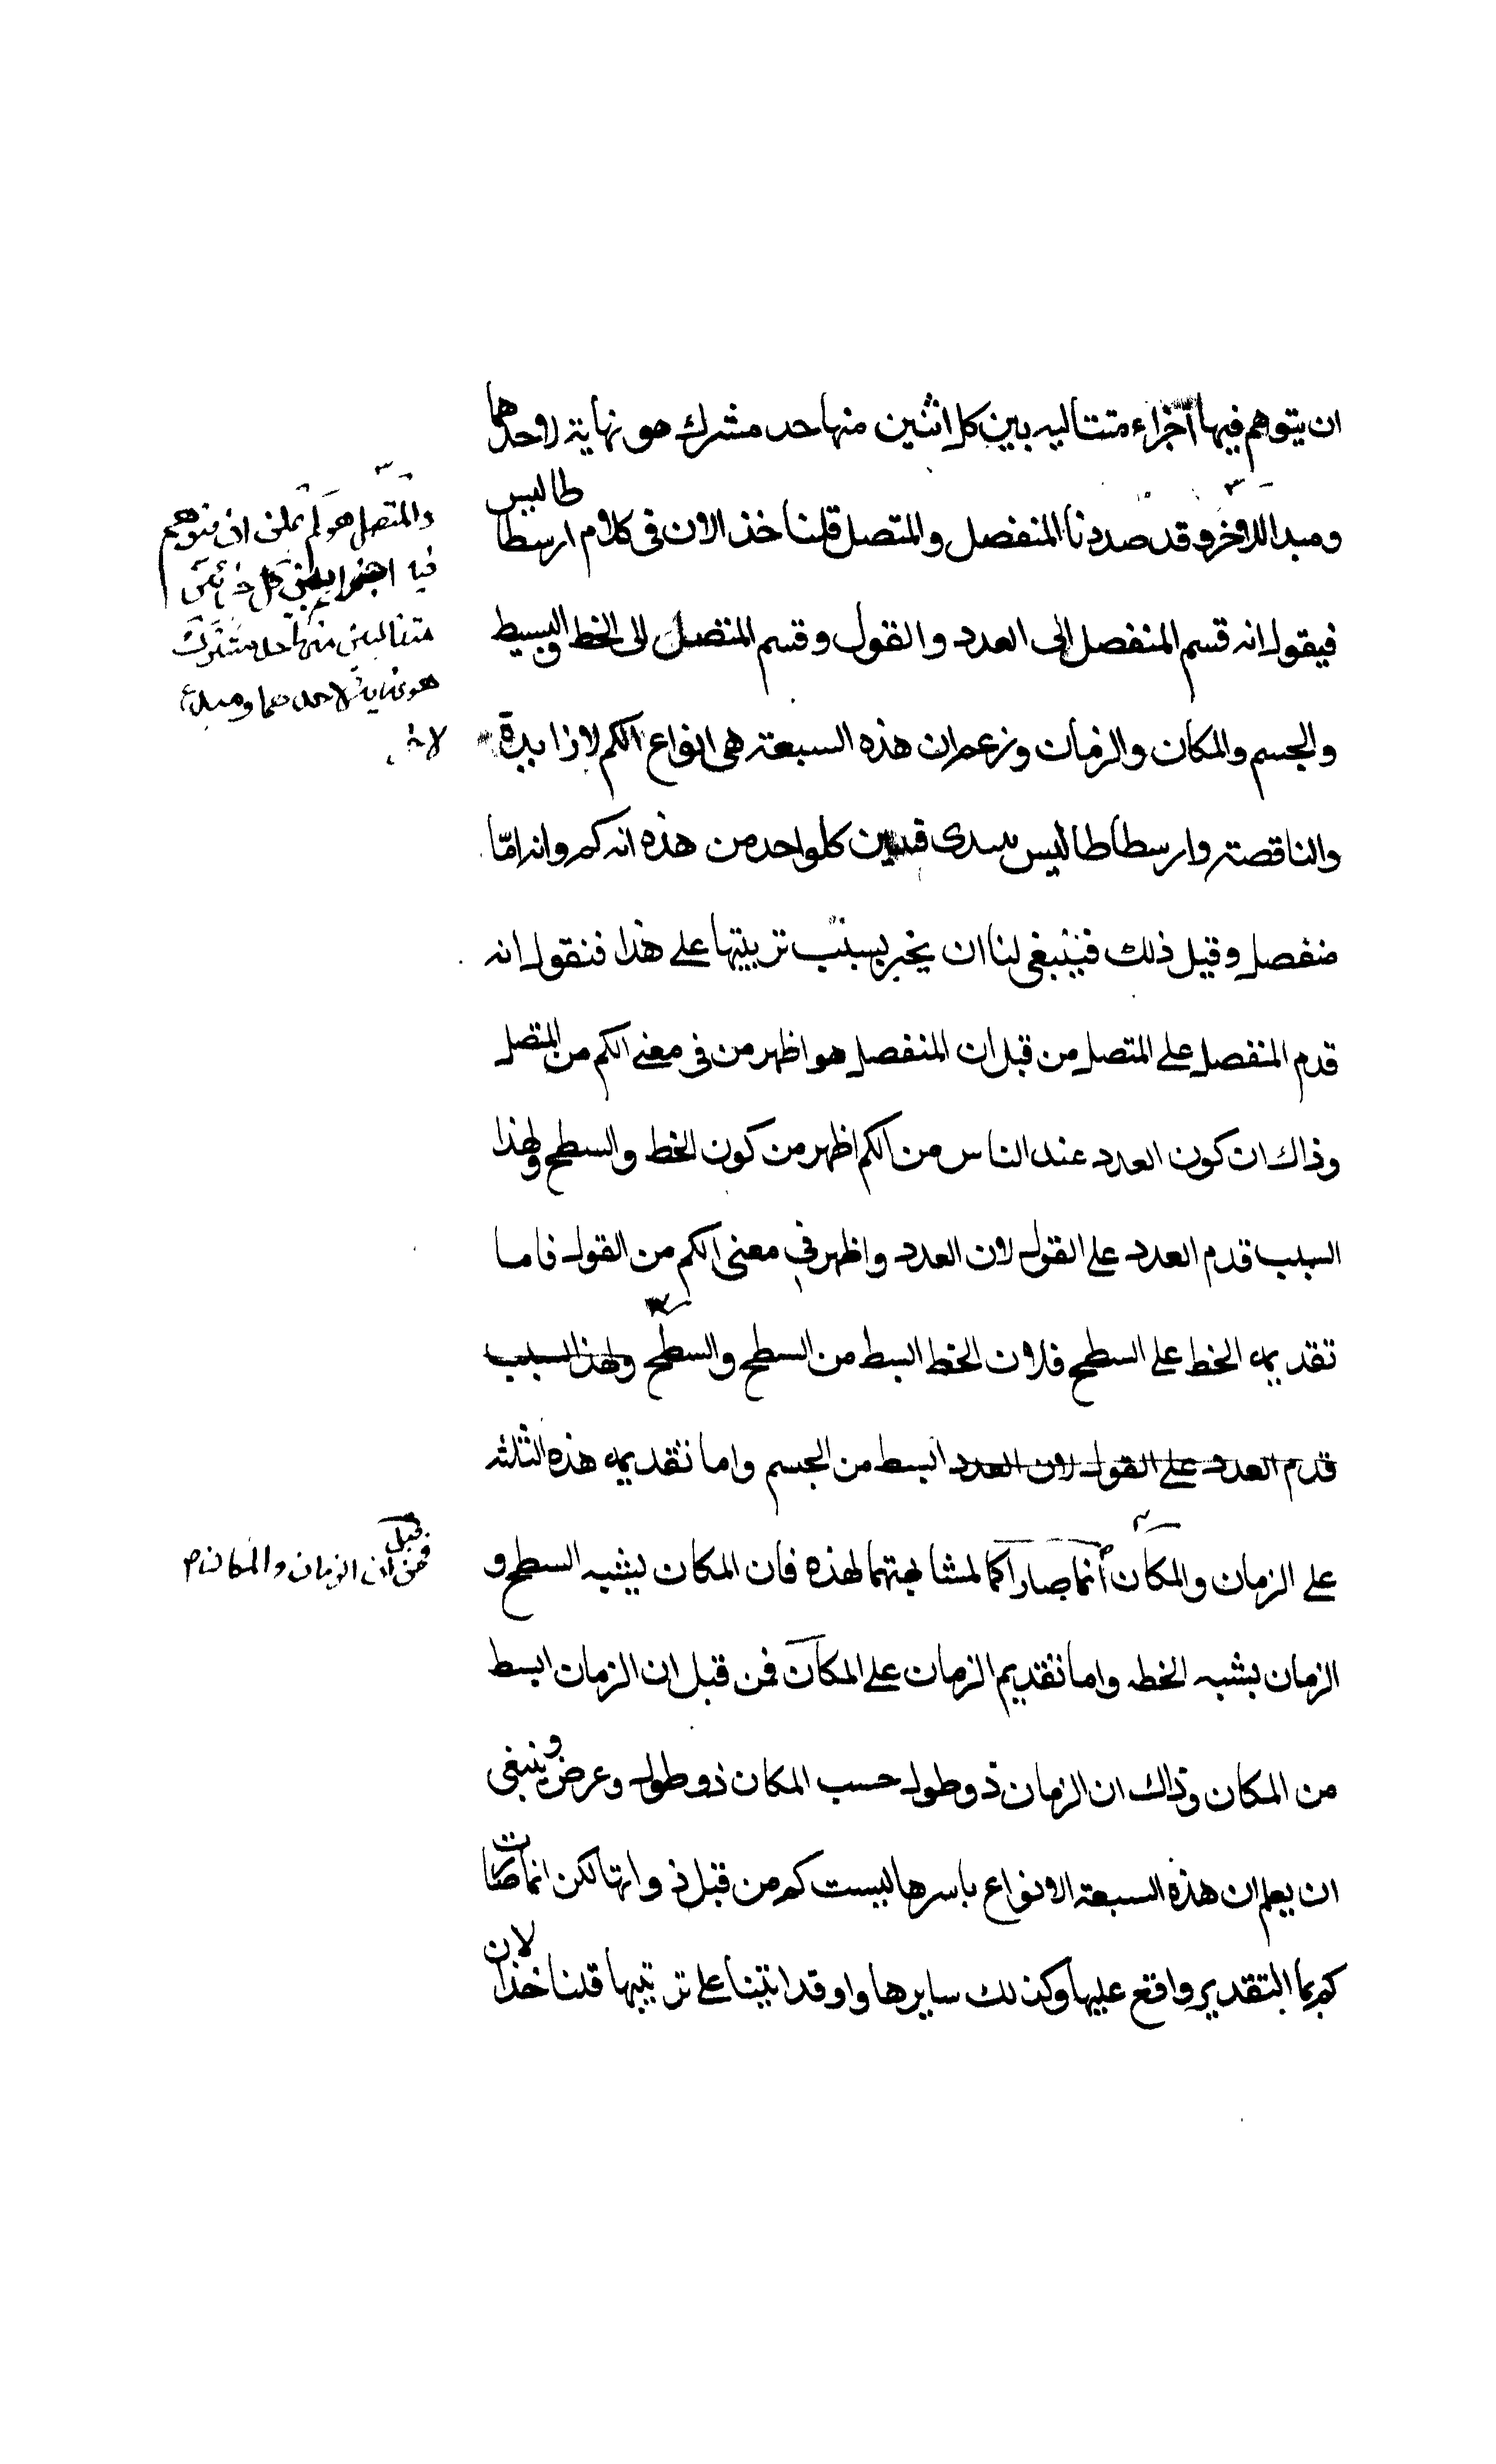 ان يتوهم فيها اجزاء متتاليه بين كل اثنين منها حد مشترك هو نهاية لاحدهما
ومبدا للاخر وقد صددنا المنفصل والمتصل قلنا خذ الان فى كلام ارسطاطاليس
فيقول انه قسم المنفصل الى العدد والقول وقسم المتصل الى الخط والبسيط
والجسم والمكان والزمان وزعم ان هذه السبعة هى انواع الكم لا زايدة
والناقصة وارسطاطاليس كلواحد من هذه انه كم وانه امّا
منفصل وقيل ذلك فينبغى لنا ان يخبر بسبب ترتيبها على هذا فنقول انه
قدم المنفصل على المتصل من قبل ان المنفصل هو اظهر من فى معنى الكم من المتصل
وذاك ان كون العدد عند الناس من الكم اظهر من كون الخط والسطح ولهذا
السبب قدم العدد على القول لان العدد واظهر فى معنى الكم من القول فاما
تقديمه الخط على السطح فلان الخط ابسط من السطح والسطح ولهذا السبب
قدم العدد على القول لان العدد ابسط من الجسم واما تقديمه هذه الثلثه
على الزمان والمكان انما صارا كما لمشابهتهما لهذه فان المكان يشبه السطح و
الزمان يشبه الخط واما تقديم الزمان على المكان فمن قبل ان الزمان ابسط
من المكان وذاك ان الزمان ذو طول حسب المكان ذو طول وعرض وينبغى
ان يعلم ان هذه السبعة الانواع باسرها ليست كم من قبل ذواتها لكن انما صارت
كم بما التقدير واقع عليها وكذلك سايرها واوقد اتينا على ترتيبها قلنا خذ الان
والمتصل هو كم يمكن ان يتوهم
فيه اجزا بين كل جزئين
متتاليين منها حد مشترك
هو نهاية لاحدهما ومبدء
لاخر
فمن قبل ان الزمان والمكان م